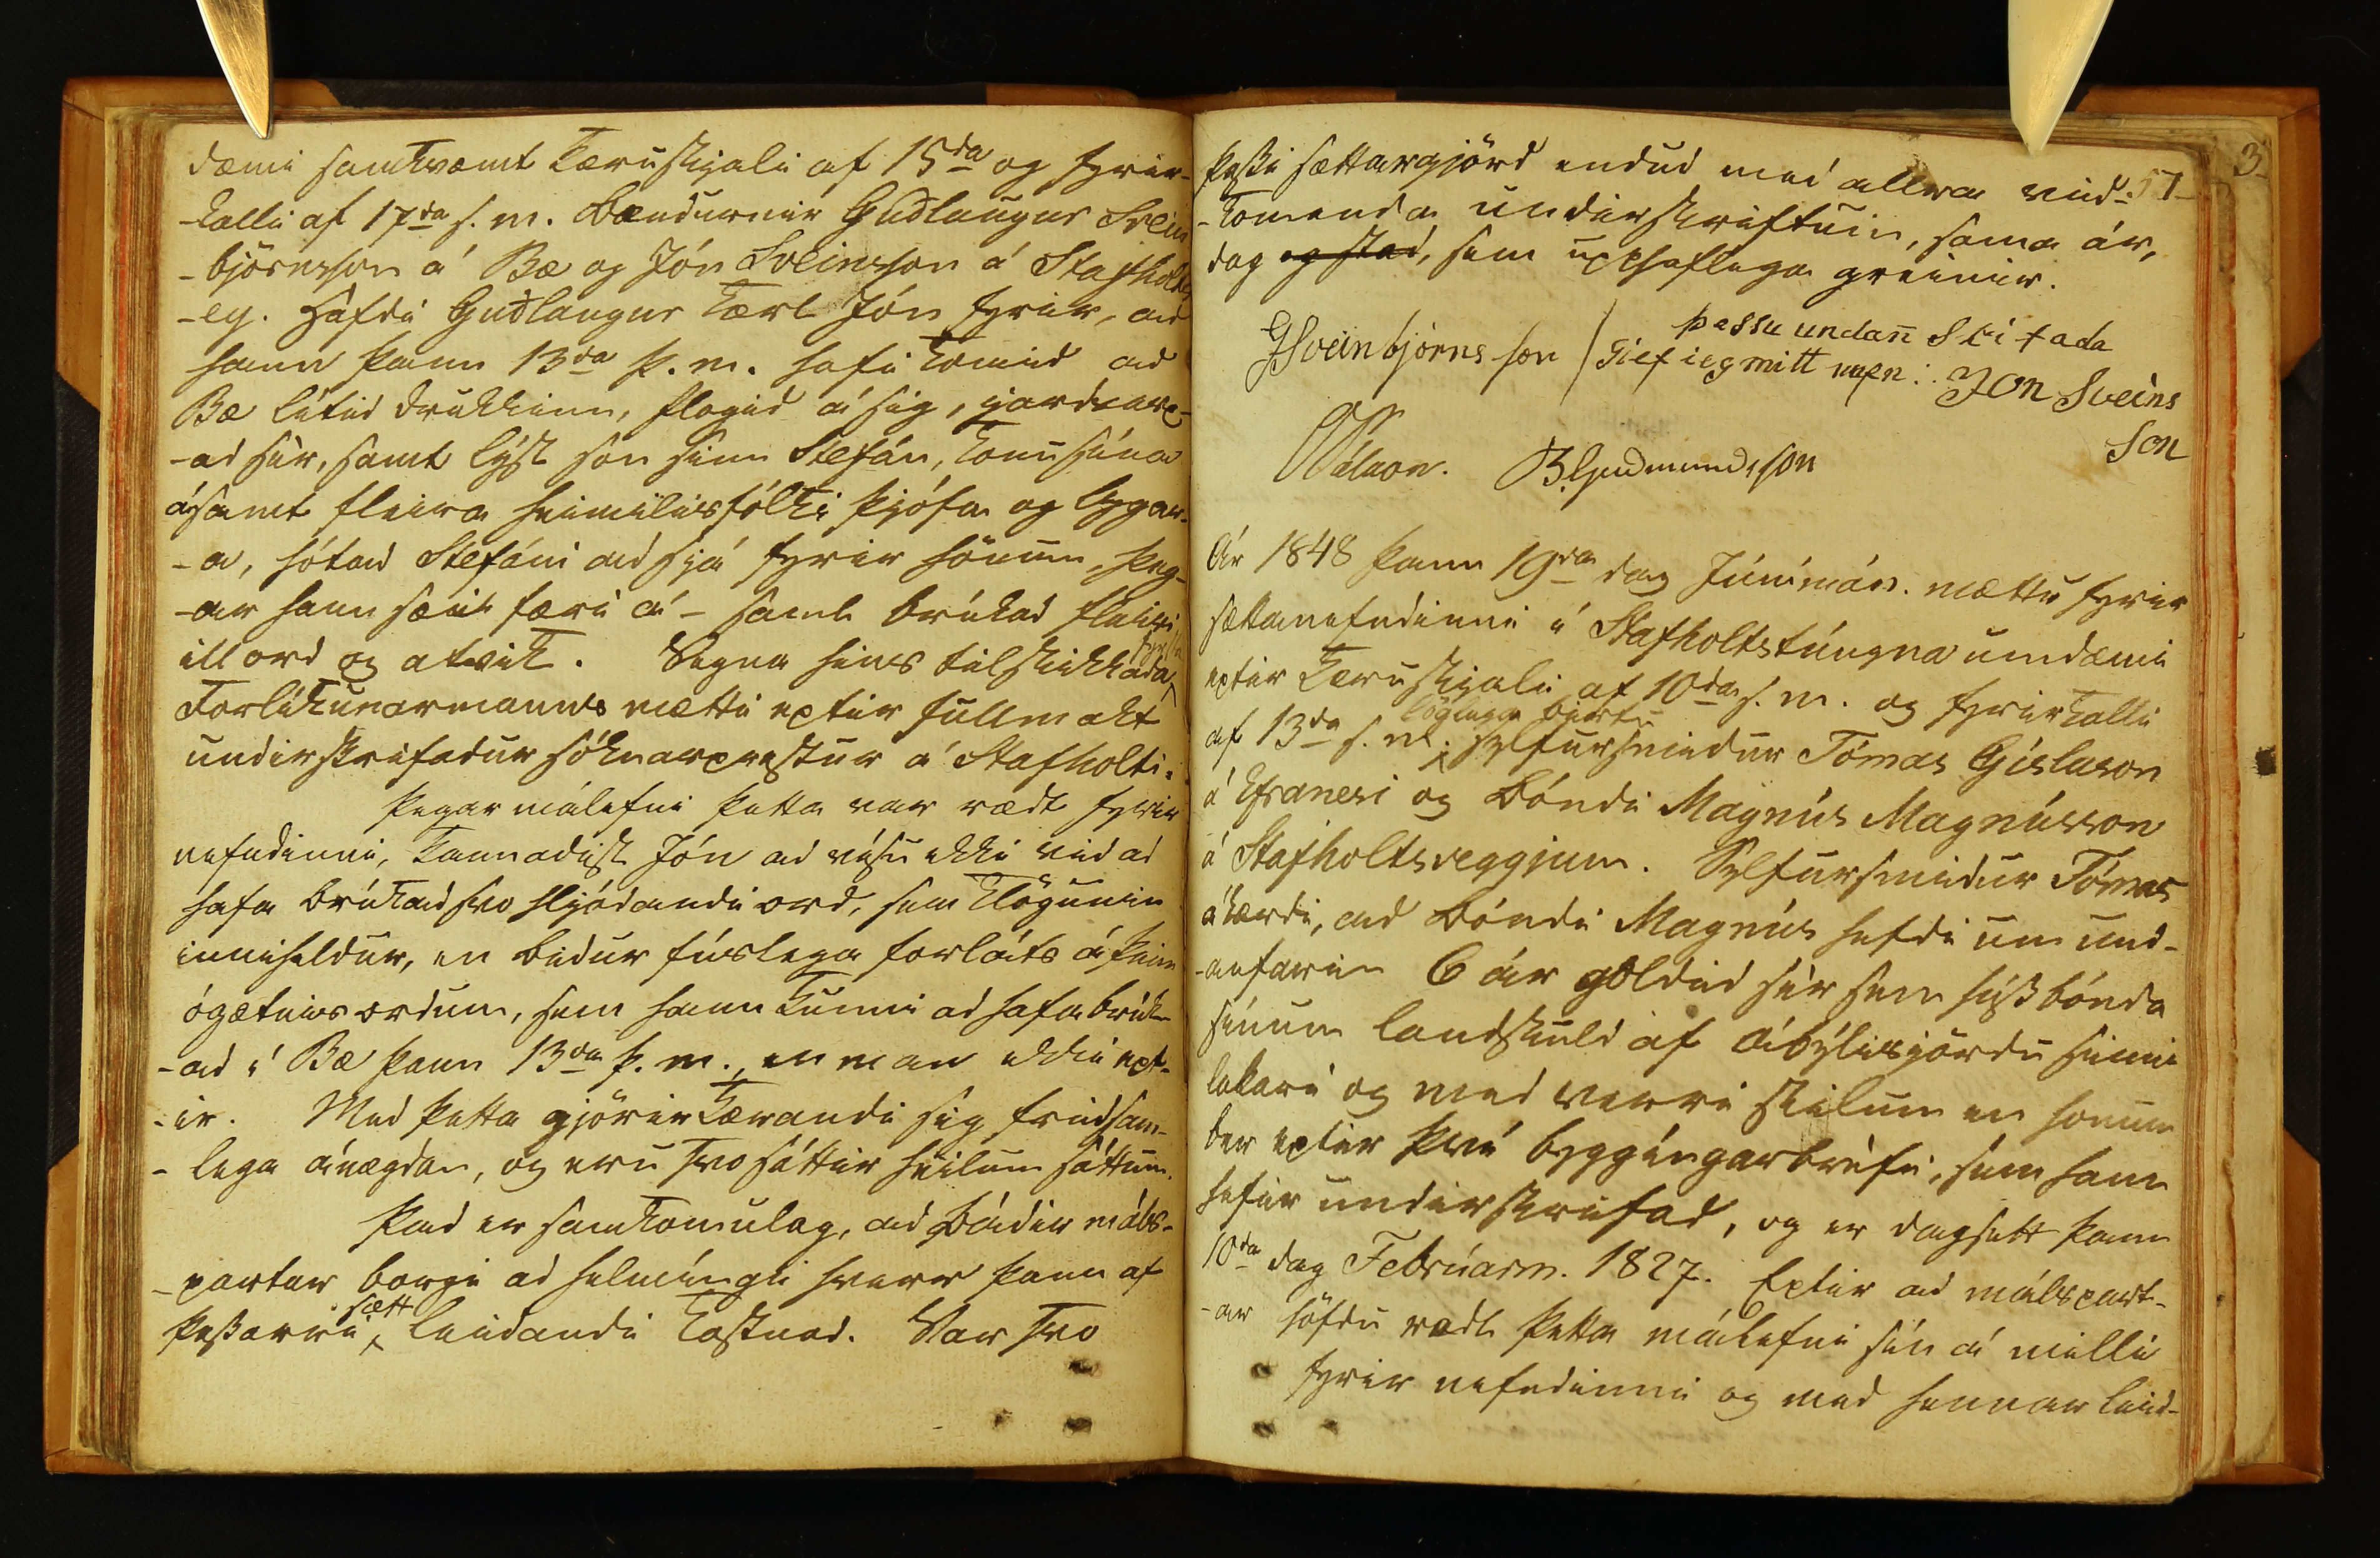 dæmi samkvæmt kæruskjali af 15da og fyrir-
-kalli af 17da s. m. bændurnir Gudlaugur Svein
-björnsson á Bæ og Jón Sveinsson á Stafholts
-ey. Hafdi Gudlaugur kært Jón fyrir, ad
hann þann 13da þ. m. hafi komid ad
Bæ litid drukkinn, flogid á sig,
-ad sèr, samt lýst son sinn Stefán, konu sína
ásamt fleira heimilisfólki þjófa og lygar-
-a, hótad Stefáni ad sjá fyrir hönum, þeg-
-ar hann sæi færi á - samt brúkad fleiri
ill ord og atvik. Vegna hins tilskikkada fyrsta
Forlíkunarmanns mætti eptir fullmakt
undirskrifadur sóknarprestur á Stafholti.
Þegar málefni þetta var rædt fyrir
nefndinni, kannadist Jón ad vísu ekki vid ad
hafa brúkad svo hljódandi ord, sem klögunin
inniheldur, en bidur fúslega forláts á þeim
ógætnis ordum, sem hann kunni ad hafa brúk-
-ad í Bæ þann 13da þ. m., en man ekki ept-
-ir. Med þetta gjörir kærandi sig fridsam-
-lega ánægdan, og eru svo sáttir heilum sáttum.
Þad er samkomulag, ad bádir máls-
-partar borgi ad helmíngi hverr þann af
þessarri sætt leidandi kostnad. Var svo
57
3
þessi sættargjörd endud med allra vid-
-komenda undirskriftum, sama ár,
dag og stad, sem upphaflega greinir.
GSveinbjörns son
þessu undan Skrifada
Gief ieg mitt nafn: JON Sveins
Son
BGudmundsson
Ár 1848 þann 19da dag Júnímán. mættu fyrir
sættanefndinni í Stafholtstúngna umdæmi
eptir kæruskjali af 10da s. m. og fyrirkalli
af 13da s. m. löglega birtu sylfursmidur Tómas Gíslason
á Efranesi og bóndi Magnús Magnússon
á Stafholtsveggjum. Sylfursmidur Tómas
ákærdi, ad bóndi Magnús hefdi um und-
-anfarin 6 ár goldid sèr sem húsbónda
sínum landskuld af ábýlisjördu sinni
lakari og med verri skilum en honum
ber eptir því byggíngarbrèfi, sem hann
hefir undirskrifad, og er dagsett þann
10da dag Febrúarm. 1827. Eptir ad málspart-
-ar höfdu rædt þetta málefni sín á milli
fyrir nefndinni og med hennar leid-